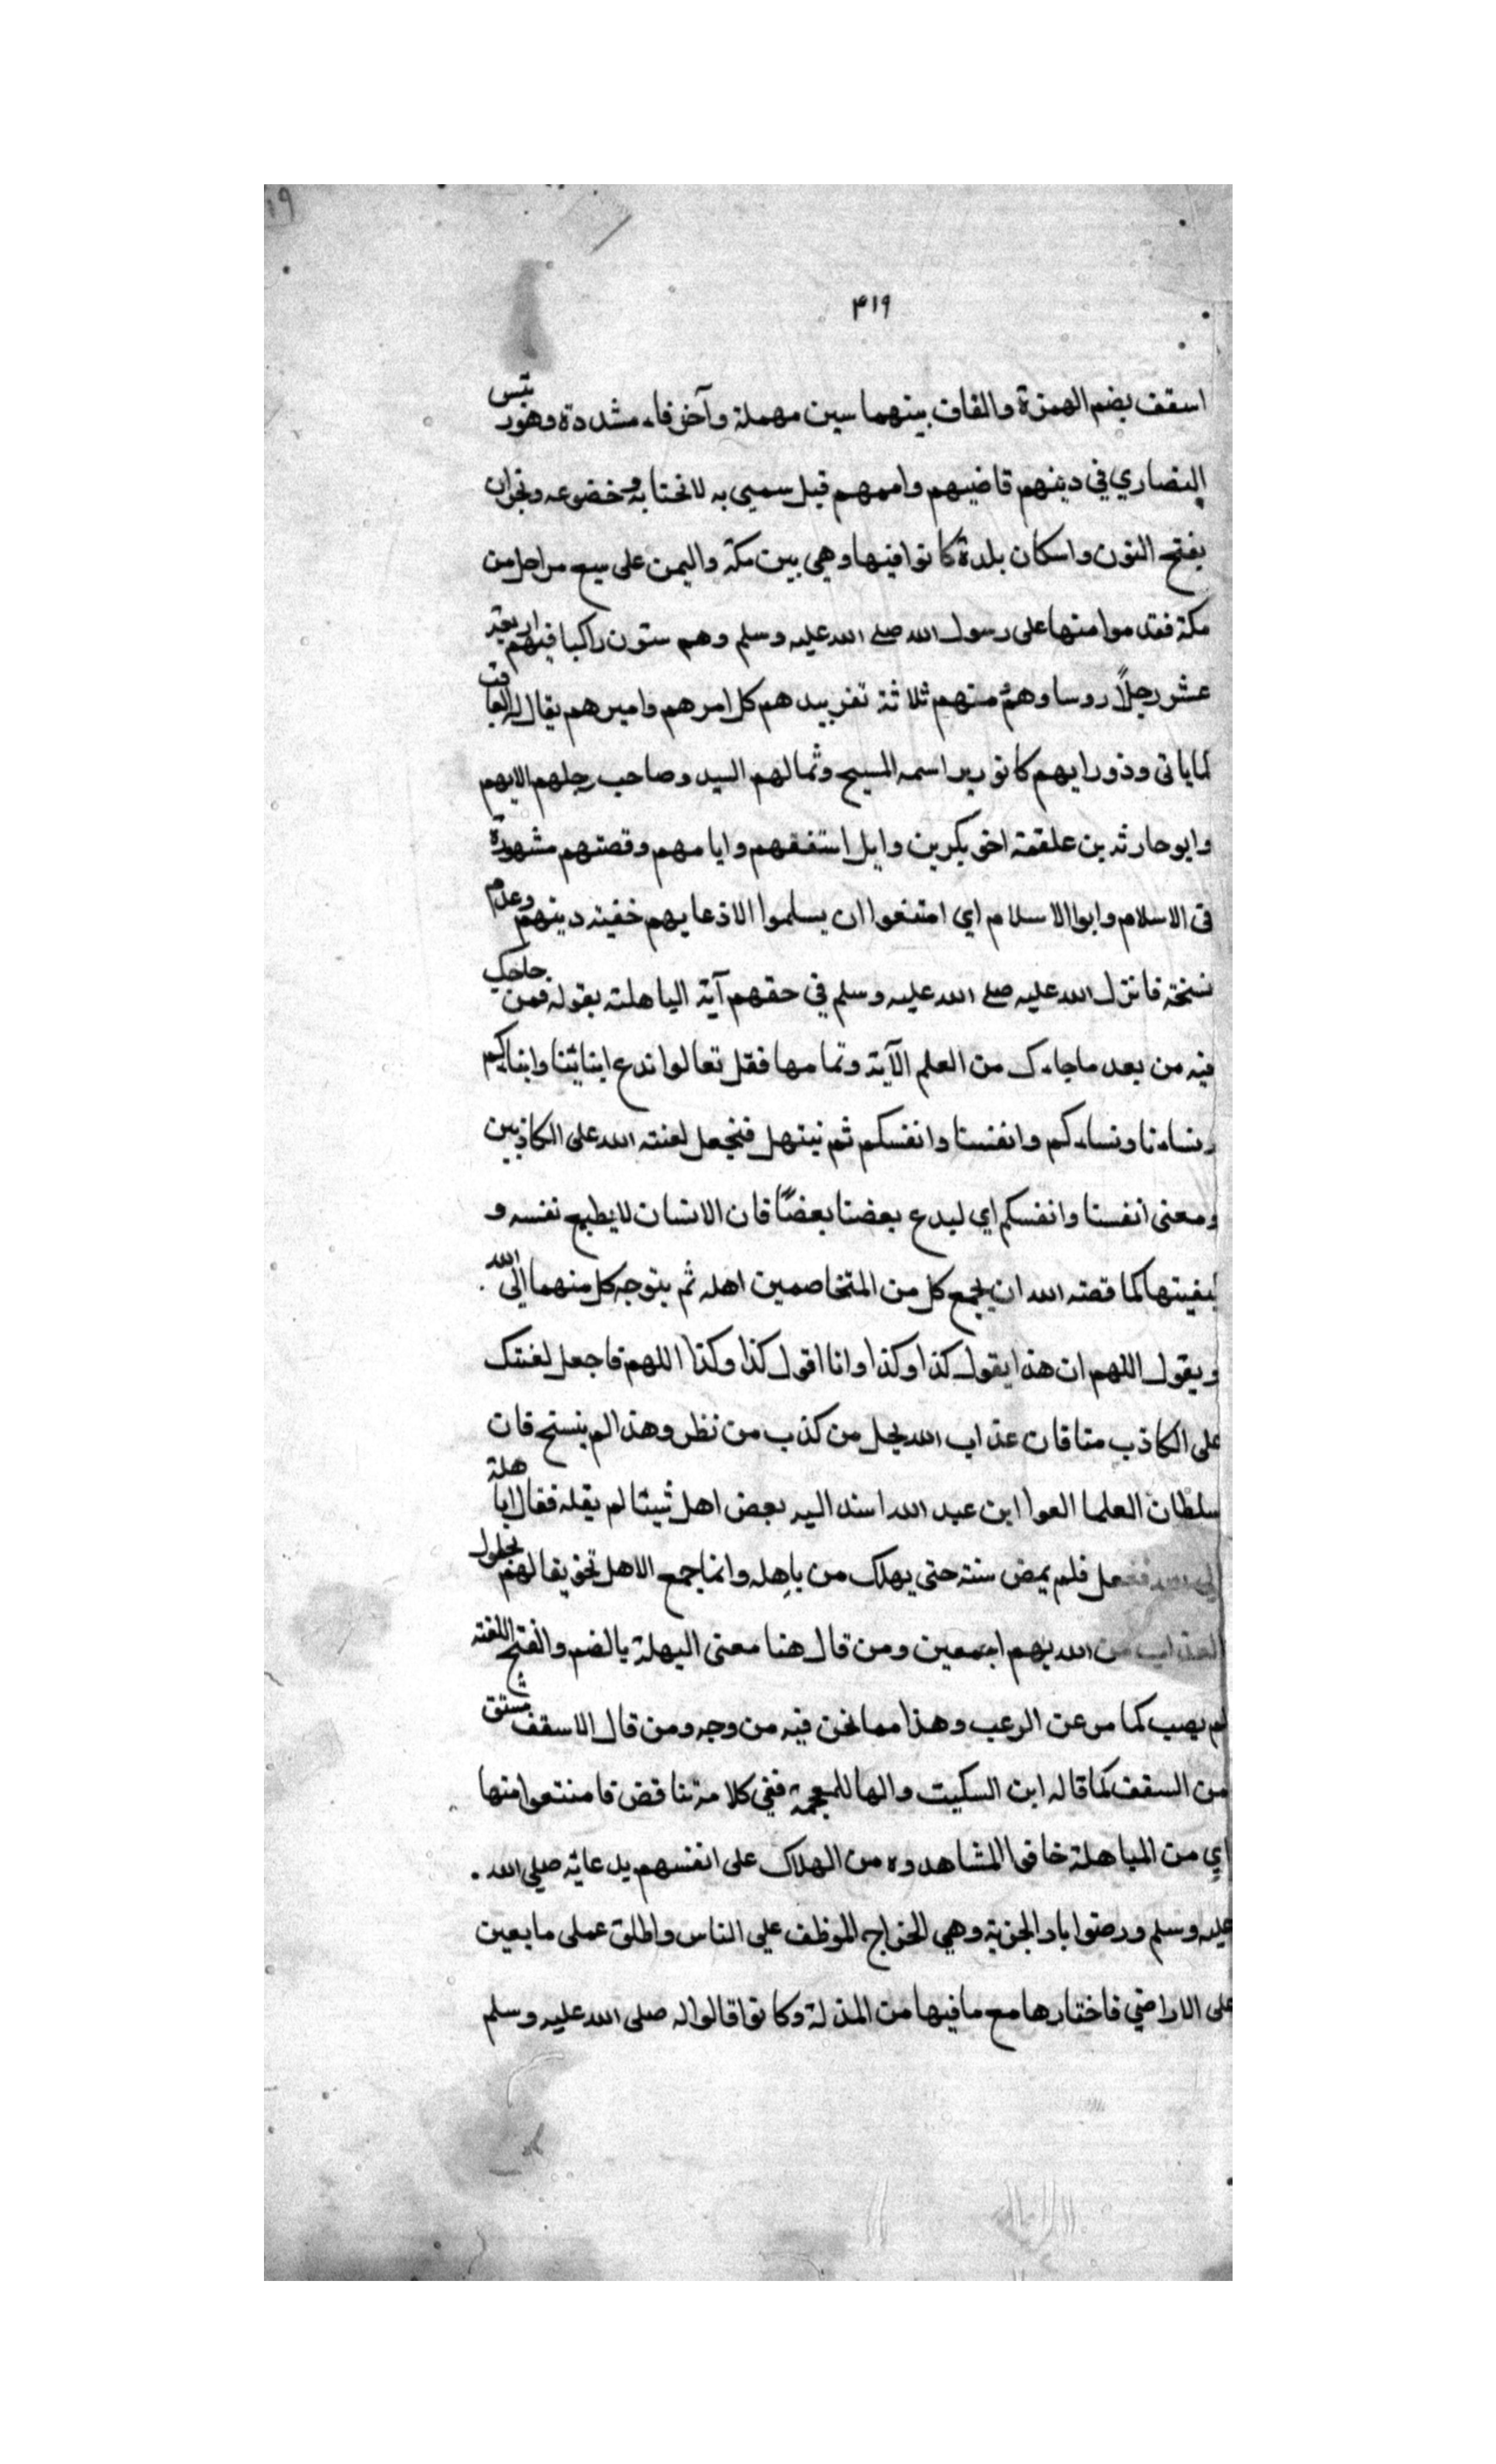 ۴۱۹
اسقف بضم الهمزة والقاف بينهما سين مهملة وآخره فاء مشددة وهو رئيس
النصاري في دينهم قاضيهم واممهم قيل سمي به لانحنائه وخضوعه ونجران
بفتح النون واسكان بلدة كانوا فيها وهي بين مكة واليمن على سبع مراحل من
مكة فقدموا منها على رسول الله صلے الله عليه وسلم وهم ستون راكبا فيهم اربعة
عشر رجلاً روسا وهم منهم ثلاثة نفر بيدهم كل امرهم واميرهم يقال له العاقب
كما ياتى وذو رايهم كانوا اسمه المسيح وثمالهم السيد وصاحب رحلهم الايهم
وابو حارثه بن علقمة اخو بكر بن وايل استفقهم وايامهم وقصتهم مشهورة
فى الاسلام وابوا الاسلام اي امتنعوا ان يسلموا الاذعايهم خفية دينهم وعدم
نسخة فانزل الله عليه صلے الله عليه وسلم في حقهم آية الباهلة بقوله فمن حاجك
فيه من بعد ماجاءك من العلم الآية وتمامها فقل تعالوا ندع ابنائنا وابناءكم
ونساءنا ونساءكم وانفسنا وانفسكم ثم نبتهل فنجعل لعنته الله على الكاذبين
ومعنى انفسنا وانفسكم اي ليدع بعضنا بعضًا فان الانسان لا يطيع نفسه و
كيفيتها كما قصته الله ان يجمع كل من المتخاصمين اهله ثم يتوجه كل منهما الى الله
ويقول اللهم ان هذا يقول كذا وكذا وانا اقول كذا وكذا اللهم فاجعل لعنتك
على الكاذب منا فان عذاب الله يحل من كذب من نظر وهذا لم ينسخ فان
سلطان العلما العوا ابن عبد الله اسند اليه بعض اهل شيئا لم يقله فقال اباهلة
الى الله ففعل فلم يمض سنة حتى يهلك من باهله وانما جمع الاهل تخويفا لهم بحلول
العذاب من الله بهم اجمعين ومن قال هنا معنى البهلة بالضم والفتح اللغته
لم يصب كما مر عن الرعب وهذا مما نحن فيه من وجه ومن قال الاسقف مشتق
من السقف كما قاله ابن السكيت والها للعجمة ففي كلامه تناقض فامتنعوا منها
اي من المباهلة خافوا المشاهدوه من الهلاك على انفسهم بدعائه صلي الله
عليه وسلم ورضوا باد الجزية وهي الخراج الموظف علي الناس واطلق عملى ما بعين
على الاراضي فاختارها مع ما فيها من المذلة وكانوا قالوا له صلى الله عليه وسلم